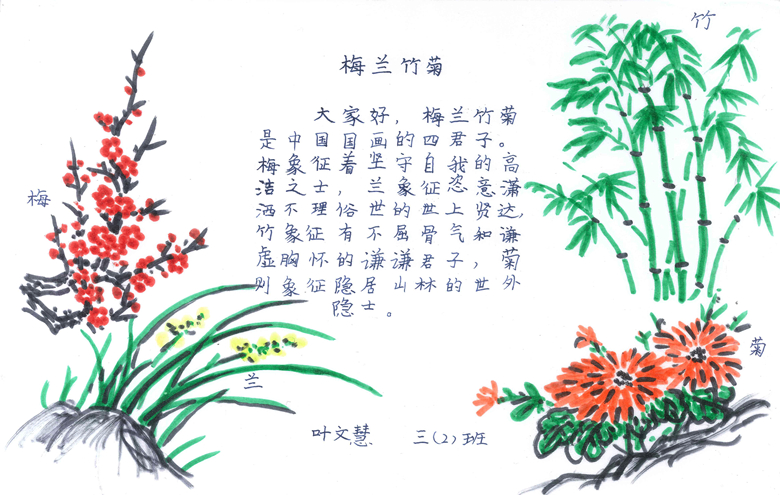 梅兰竹菊
大家好，梅兰竹菊
是中国国画的四君子。
梅象征着坚守自我的高
洁之士，兰象征恣意潇
洒不理俗世的世上贤达，
竹象征有不屈骨气和谦
虚胸怀的谦谦君子，菊
则象征隐居山林的世外
隐士。
竹
梅
兰
菊
叶文慧 三（2）班